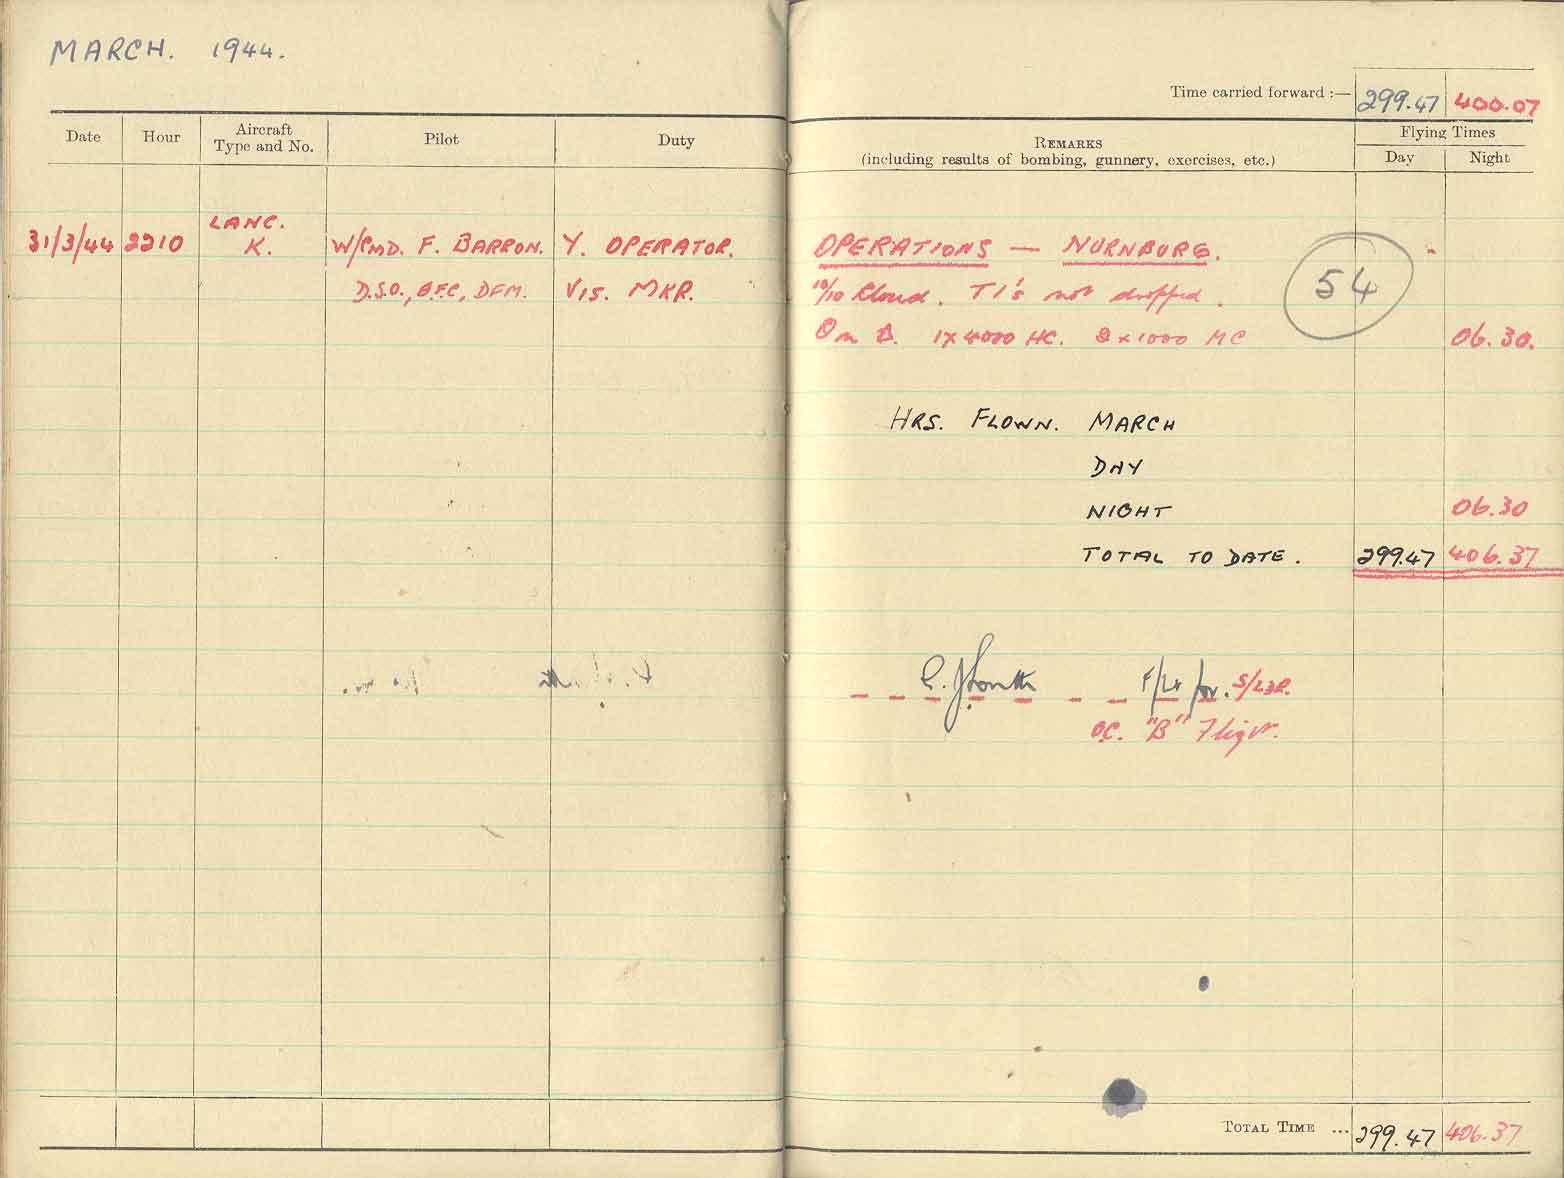 MARCH. 1944.
Time carried forward :— 299.47 400.07
Date Hour Aircraft Type and No. Pilot Duty REMARKS (including results of bombing, gunnery, exercises, etc.) Flying Times Day Night
LANC.
31/3/44 2210 K. W/CMD. F. BARRON. Y. OPERATOR. OPERATIONS — NURNBURG.
D.S.O., D.F.C, DFM. VIS. MKR. 10/10 Cloud. TI's not dropped. 54
1x4000 HC. x1000 MC 06.30.
HRS. FLOWN. MARCH
DAY
NIGHT 06.30
TOTAL TO DATE. 299.47 406.37
F/Lt for. S/LDR.
OC. "B" Flight.
TOTAL TIME ... 299.47 406.37